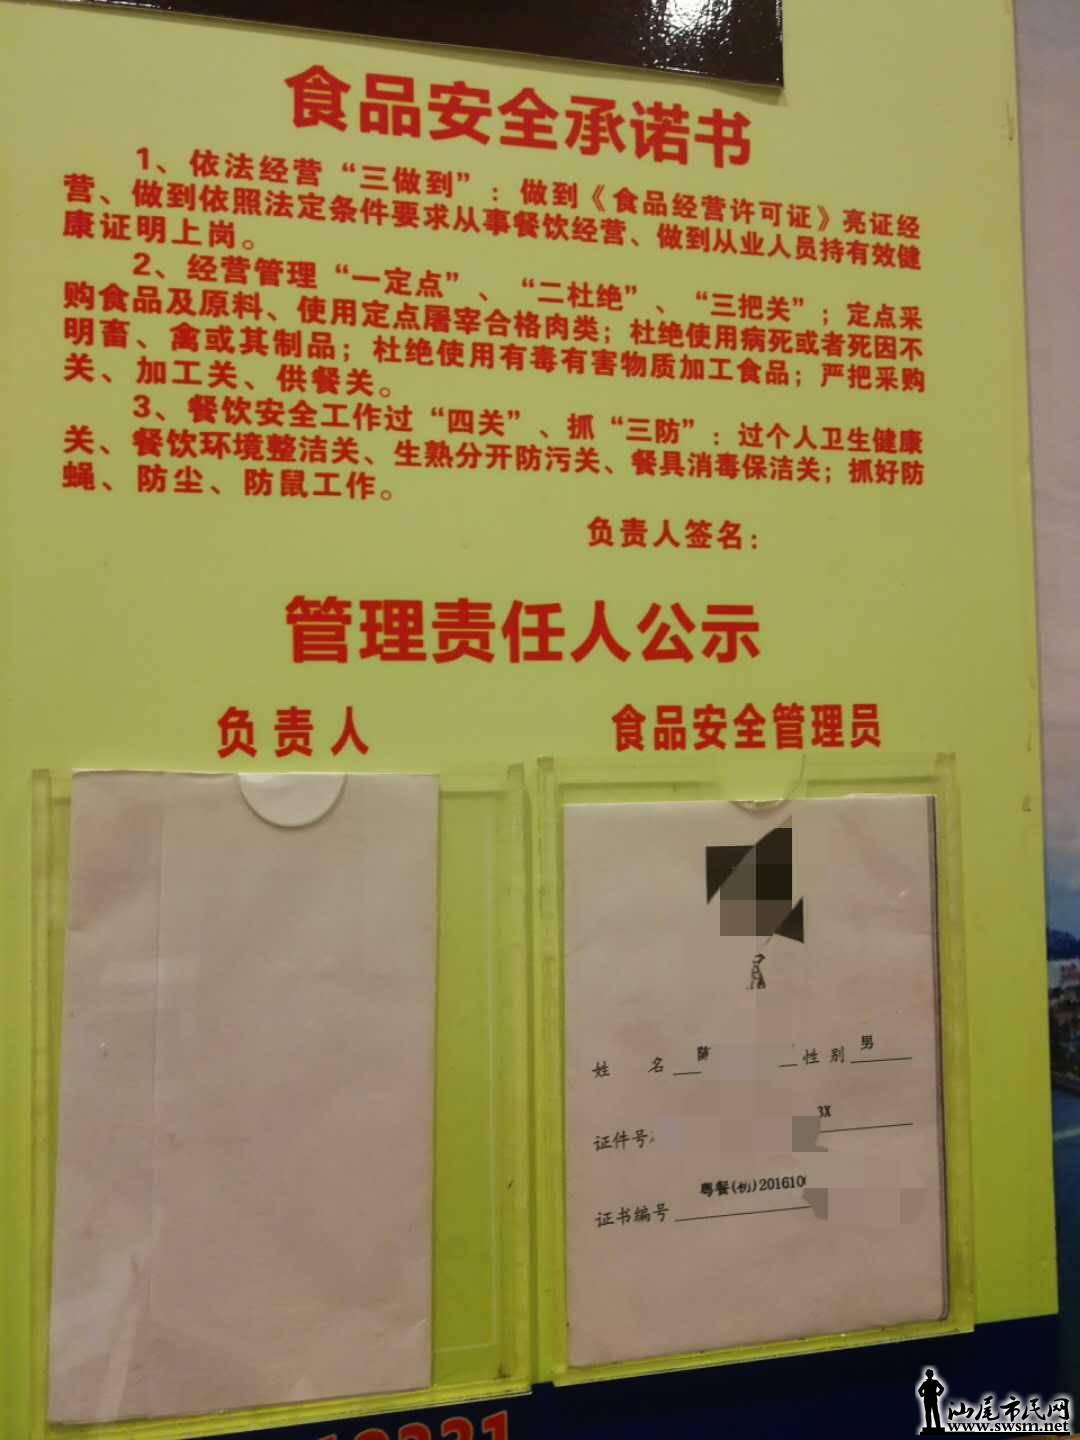 食品安全承诺书
1、依法经营“三做到”：做到《食品经营许可证》亮证经
营、做到依照法定条件要求从事餐饮经营、做到从业人员持有效健
康证明上岗。
2、经营管理“一定点”、“二杜绝”、“三把关”；定点采
购食品及原料、使用定点屠宰合格肉类；杜绝使用病死或者死因不
明畜、禽或其制品；杜绝使用有毒有害物质加工食品；严把采购
关、加工关、供餐关。
3、餐饮安全工作过“四关”、抓“三防”：过个人卫生健康
关、餐饮环境整洁关、生熟分开防污关、餐具消毒保洁关；抓好防
蝇、防尘、防鼠工作。
负责人签名：
管理责任人公示
负责人
食品安全管理员
姓 名 性别 男
证件号 3X
证书编号 粤餐(初)201610
汕尾市民网
www.swsm.net